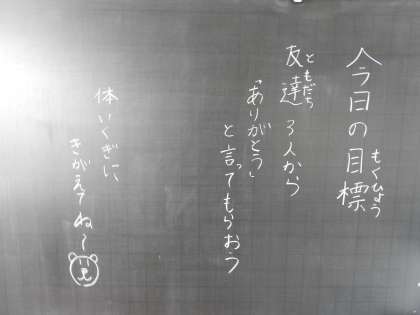 今日の目標
もくひょう
友達3人から
ともだち
「ありがとう」
と言ってもらおう
体いくぎに、
きがえてね〜